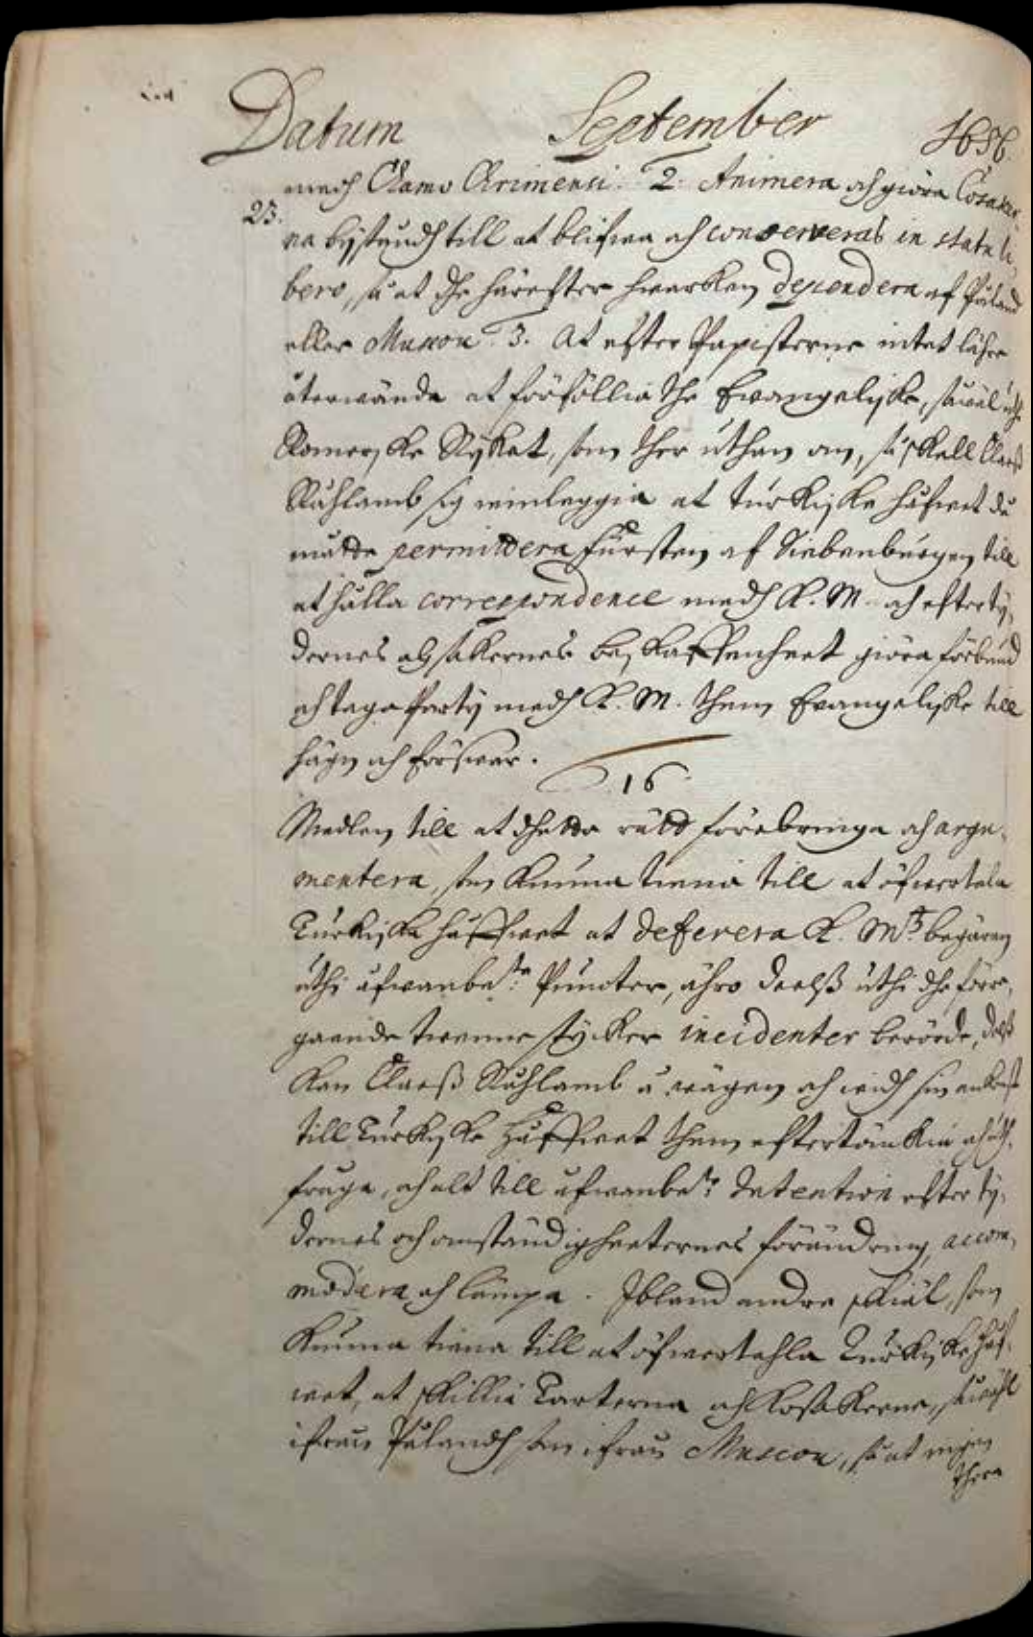 Datum September 1656.
medh Chamo Crimensi. 2. Animera och giöra Cosaker
23.
na bijstandh till at blifwa och conserveras in statu li,
bero, så at dhe härefter hwarken dependera af Påland
eller Muscou. 3. At efter Papisterne intet lähre
återwända at förföllia the Evangelijke, såwäl uthi
Romerske Rijket, som ther uthan om, så skall Claes
Råhlamb sig winleggia at turkijske håfwet då
måtte permittera Fursten af Siebenbürgen till
at hålla correspondence medh K. M. och efter tij,
dernes och sakernes beskaffenheet giöra förbund
och taga Partij medh K. M. them Evangelijke till
hägn och förswar.
16
Medlen till at dhetta rätt förebringa och argu,
mentera, som kunna tiena till at öfwertala
Turkijska håffwet at deferera K. Mtz begären
uthi ofwanbete: Puncter, ähro deelß uthi dhe före,
gaaende twenne stycker incidenter berörde, delß
kan Claeß Råhlamb å wägen och widh sin ankomst
till Turkijske Håffwet them eftertänkia och uth,
fråga, och alt till ofwanbete: Intention efter tij,
dernes och omständigheeternes förändring, accom,
modera och lämpa. Ibland andra skiäl, som
kunna tiena till at öfwertahla Turkijske Håf,
wet, at skillia Tarterna och Kosakerna, såwähl
ifrån Pålandh som ifrån Muscou, så at ingen
thera